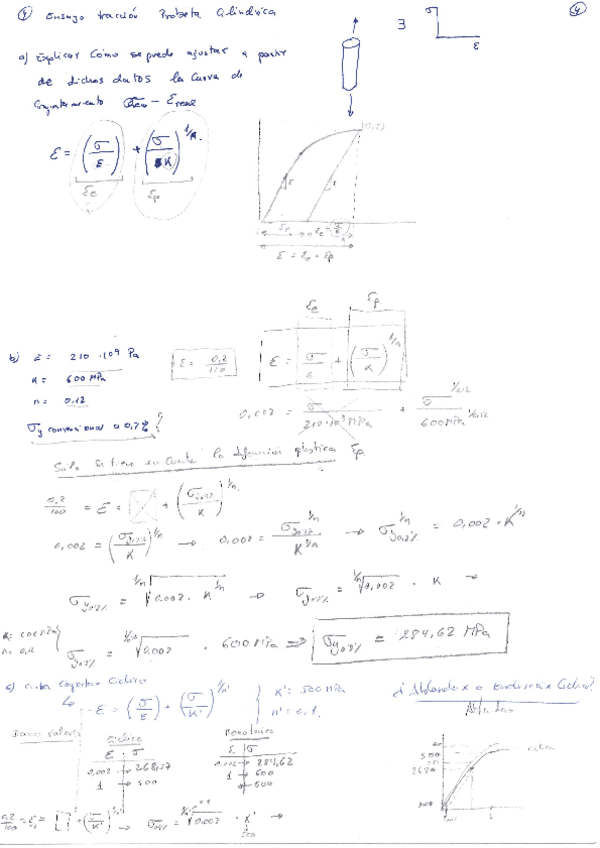 ④ Ensayo tracción Probeta Cilíndrica
④
a) Explicar Cómo se puede ajustar a partir
de dichos datos la curva de
Comportamiento σ - ε real
σ
ε
ε = (σ/E) + (σ/K)^1/n
εe εp
ε = εe + εp
εe εp
b) E = 210 · 10⁹ Pa
K = 600 MPa
n = 0,12
ε = 0,2/100
ε = σ/E + (σ/K)^1/n
σy convencional a 0,2% ?
0,002 = σ/210·10³ MPa + σ^1/0,12/600MPa^1/0,12
Sólo se tiene en cuenta la deformación plástica εp
0,2/100 = ε = + (σy0,2%/K)^1/n
0,002 = (σy0,2%/K)^1/n → 0,002 = σy0,2%^1/n/K^1/n → σy0,2%^1/n = 0,002 · K^1/n
σy0,2% = 1/n√0,002 · K^1/n → σy0,2% = 1/n√0,002 · K →
K = 600 MPa
n = 0,12
σy0,2% = 1/0,12√0,002 · 600 MPa ⇒ σy0,2% = 284,62 MPa
c) Curva Comportam Cíclico
ε = (σ/E) + (σ/K')^1/n'
K' = 500 MPa
n' = 0,1
¿Ablandax o endurecix Cíclico?
Damos valores
Cíclica
ε σ
0,002 → 268,57
1 → 500
Monotónica
ε σ
0,002 → 284,62
1 → 600
→ 500
0,2/100 = ε = [ ] + (σ/K')^1/n' → σ0,2% = 0,002 · K' →
500